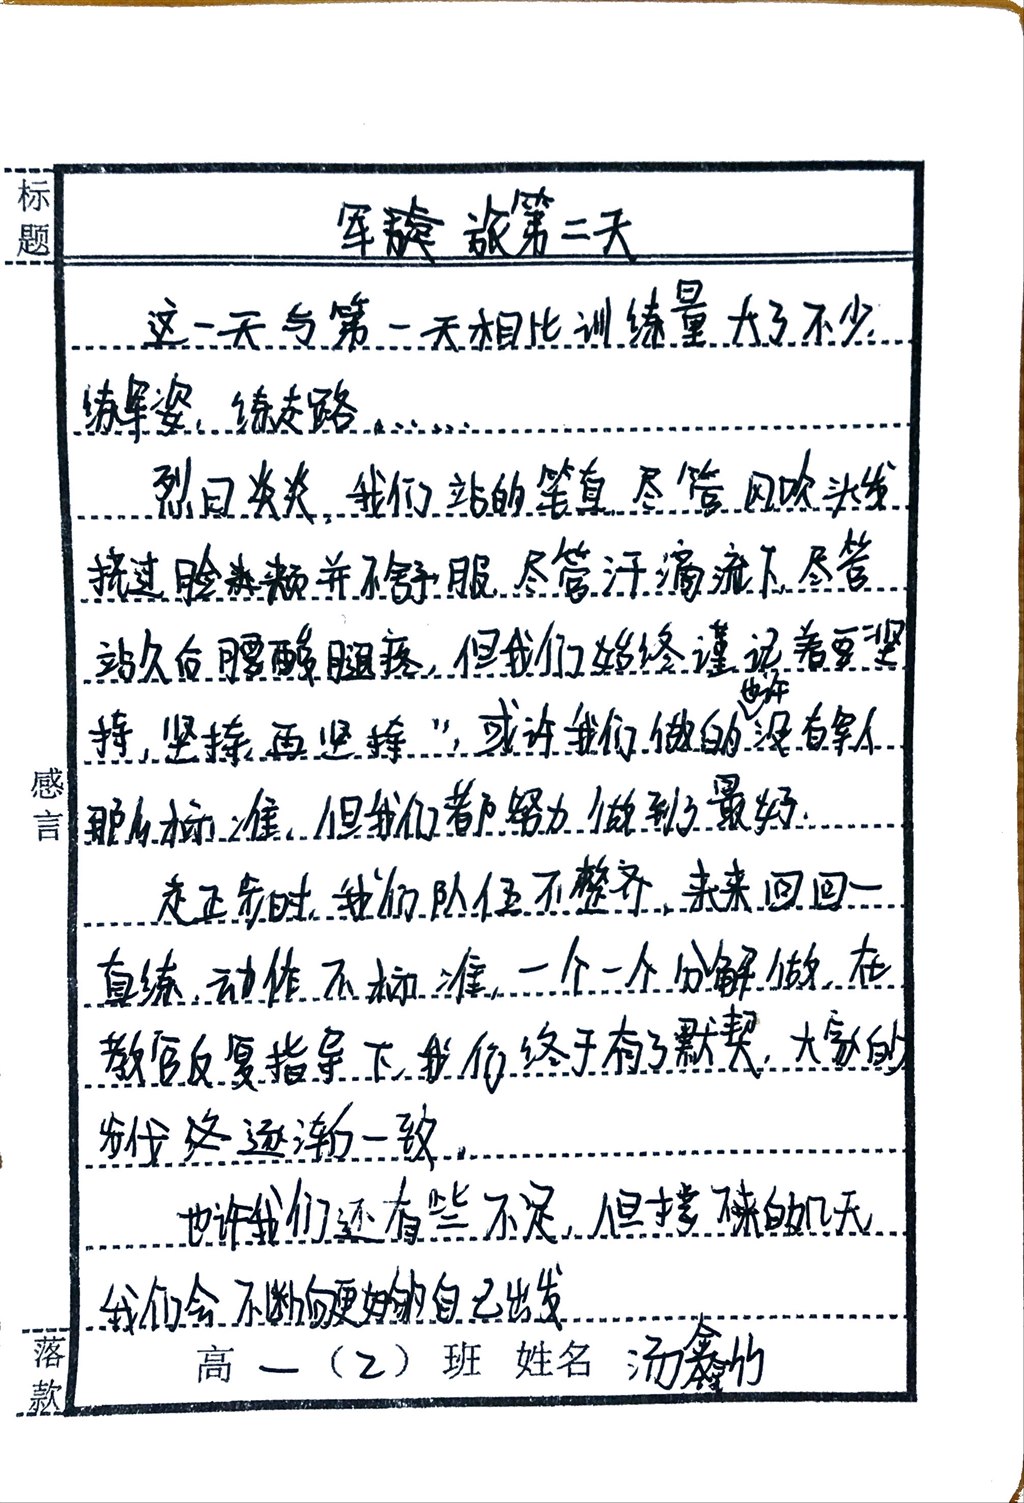 标题
军旅第二天
这一天与第一天相比训练量大了不少.
练军姿、练走路......
烈日炎炎,我们站的笔直,尽管风吹头发
挠过脸颊并不舒服,尽管汗滴流下,尽管
站久后腰酸腿疼,但我们始终谨记着要"坚
持,坚持,再坚持",或许我们做的也许没有军人
那么标准,但我们都努力做到了最好.
走正步时,我们队伍不整齐,来来回回一
直练,动作不标准,一个一个分解做,在
教官反复指导下,我们终于有了默契,大家的
步伐终逐渐一致.
也许我们还有些不足,但接下来的几天,
我们会不断向更好的自己出发
感言
落款
高一(2)班 姓名 汤鑫竹